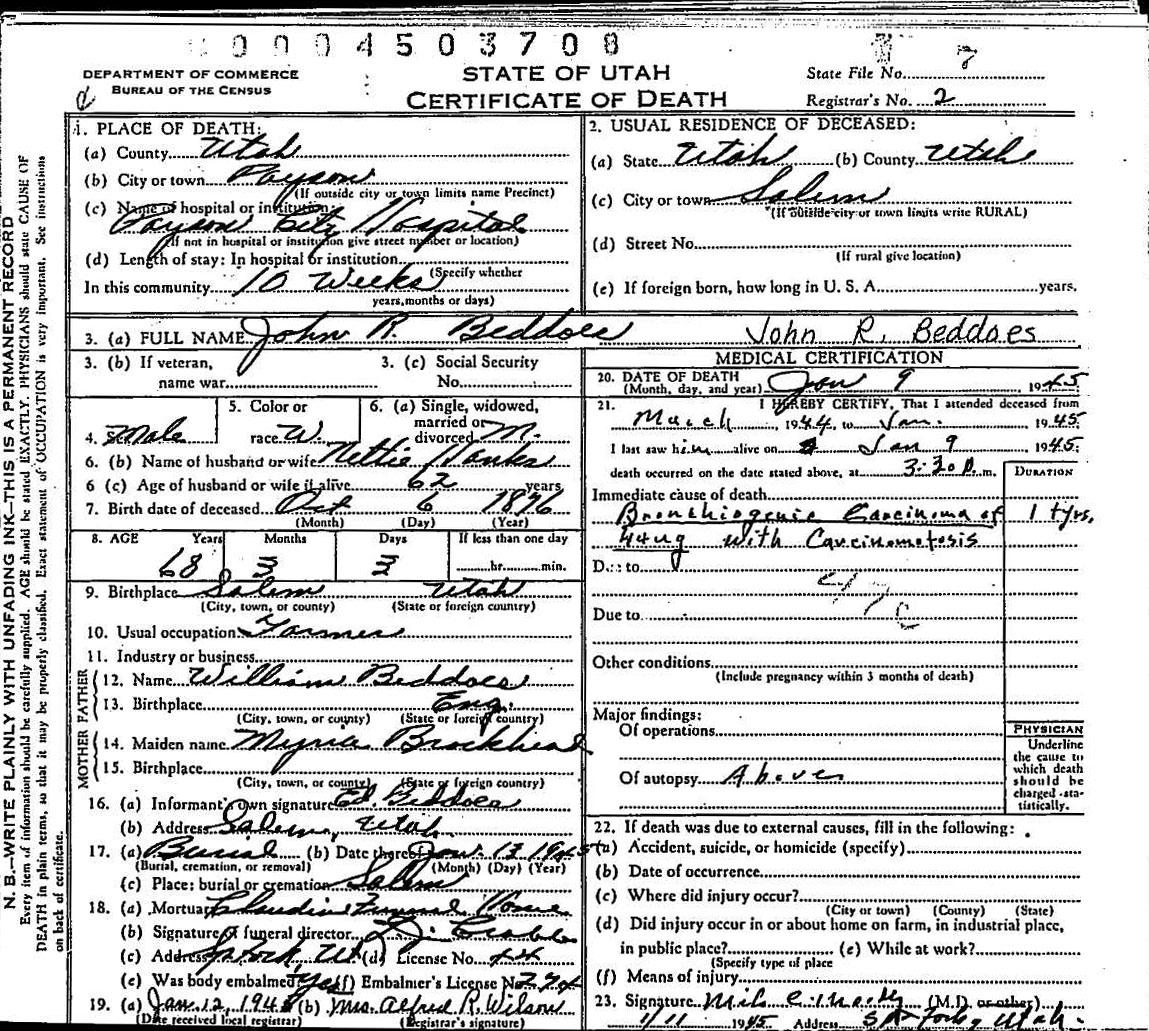 0004503708
DEPARTMENT OF COMMERCE
BUREAU OF THE CENSUS
STATE OF UTAH
CERTIFICATE OF DEATH
State File No. 7
Registrar's No. 2
N. B.—WRITE PLAINLY WITH UNFADING INK—THIS IS A PERMANENT RECORD
Every item of information should be carefully supplied. AGE should be stated EXACTLY. PHYSICIANS should state CAUSE OF
DEATH in plain terms, so that it may be properly classified. Exact statement of OCCUPATION is very important. See instructions
on back of certificate.
1. PLACE OF DEATH:
(a) County Utah
(b) City or town Payson
(If outside city or town limits name Precinct)
(c) Name of hospital or institution:
Payson City Hospital
(If not in hospital or institution give street number or location)
(d) Length of stay: In hospital or institution
(Specify whether
In this community 10 Weeks
years, months or days)
2. USUAL RESIDENCE OF DECEASED:
(a) State Utah (b) County Utah
(c) City or town Salem
(If outside city or town limits write RURAL)
(d) Street No.
(If rural give location)
(e) If foreign born, how long in U. S. A. years.
3. (a) FULL NAME John R. Beddoes John R. Beddoes
3. (b) If veteran, 3. (c) Social Security
name war No.
4. Male 5. Color or race W. 6. (a) Single, widowed, married or divorced M.
6. (b) Name of husband or wife Nettie Hanks
6 (c) Age of husband or wife if alive 62 years
7. Birth date of deceased Oct 6 1876
(Month) (Day) (Year)
8. AGE Years Months Days If less than one day
68 3 3 hr. min.
9. Birthplace Salem Utah
(City, town, or county) (State or foreign country)
10. Usual occupation Farmer
11. Industry or business
FATHER
12. Name William Beddoes
13. Birthplace Eng.
(City, town, or county) (State or foreign country)
MOTHER
14. Maiden name Brockhead
15. Birthplace
(City, town, or county) (State or foreign country)
16. (a) Informant's own signature Ed. Beddoes
(b) Address Salem, Utah
17. (a) Burial (b) Date thereof Jan. 13 1945
(Burial, cremation, or removal) (Month) (Day) (Year)
(c) Place: burial or cremation Salem
18. (a) Mortuary Claudin Funeral Home
(b) Signature of funeral director
(c) Address (d) License No. 44
(e) Was body embalmed Yes (f) Embalmer's License No. 274
19. (a) Jan. 12, 1945 (b) Mrs. Alfred R. Wilson
(Date received local registrar) (Registrar's signature)
MEDICAL CERTIFICATION
20. DATE OF DEATH Jan 9 1945
(Month, day, and year)
21. I HEREBY CERTIFY, That I attended deceased from
March, 1944, to Jan. 1945
I last saw him alive on Jan 9 1945.
death occurred on the date stated above, at 3:30 p.m.
DURATION
Immediate cause of death
Bronchiogenic Carcinoma of 1 yrs.
Lung with Carcinomatosis
Due to
47c
Due to
Other conditions
(Include pregnancy within 3 months of death)
Major findings:
Of operations
Of autopsy Above
PHYSICIAN
Underline
the cause to
which death
should be
charged sta-
tistically.
22. If death was due to external causes, fill in the following:
(a) Accident, suicide, or homicide (specify)
(b) Date of occurrence
(c) Where did injury occur?
(City or town) (County) (State)
(d) Did injury occur in or about home on farm, in industrial place,
in public place? (e) While at work?
(Specify type of place
(f) Means of injury
23. Signature (M.D. or other)
1/11 1945 Address Sp. Fork, Utah